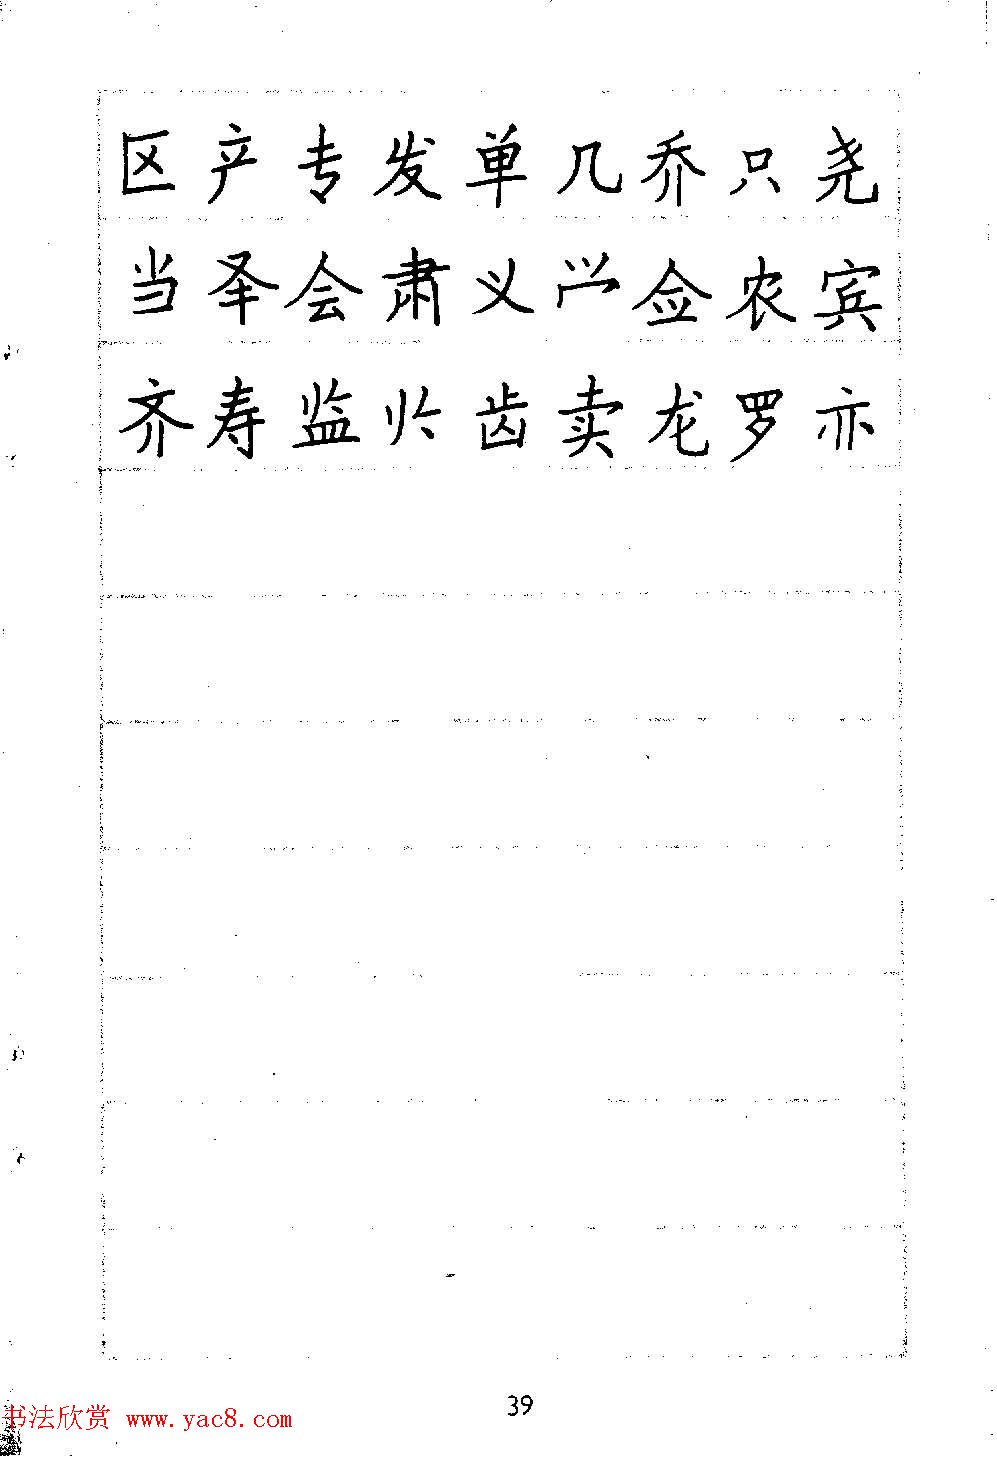 区产专发单几乔只尧
当𠬤会肃义𭕄佥农宾
齐寿监㐅齿卖龙罗亦
39
书法欣赏 www.yac8.com